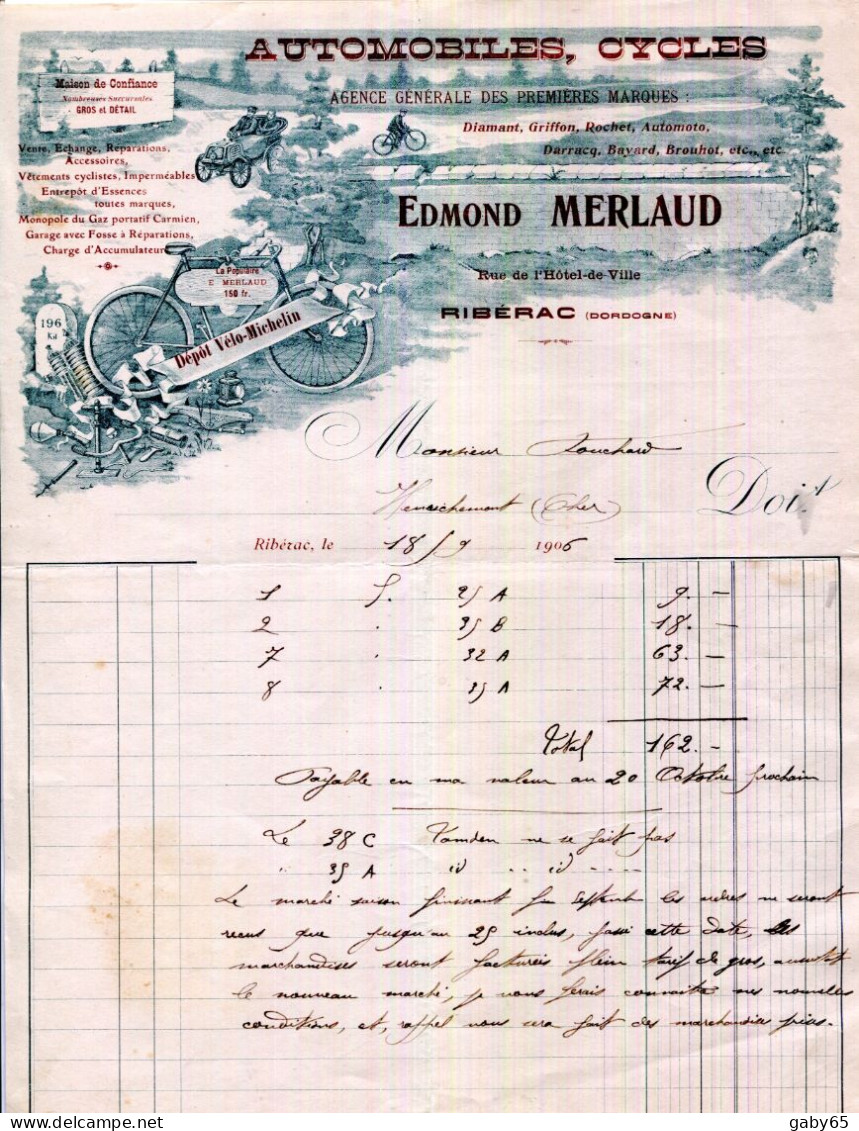 AUTOMOBILES, CYCLES
Maison de Confiance
Nombreuses Succursales
GROS et DÉTAIL
AGENCE GÉNÉRALE DES PREMIÈRES MARQUES :
Diamant, Griffon, Rochet, Automoto,
Darracq, Bayard, Brouhot, etc., etc.
Vente, Echange, Réparations,
Accessoires,
Vêtements cyclistes, Imperméables
Entrepôt d'Essences
toutes marques,
Monopole du Gaz portatif Carmien,
Garage avec Fosse à Réparations,
Charge d'Accumulateurs
EDMOND MERLAUD
Rue de l'Hôtel-de-Ville
RIBÉRAC (DORDOGNE)
La Populaire
E MERLAUD
150 fr.
196
Kil
Dépôt Vélo-Michelin
Monsieur Souchard
Henrichemont (Cher) Doit
Ribérac, le 18/9 1906
1 35 A 9. —
2 " 35 B 18. —
7 " 32 A 63. —
8 " 35 A 72. —
Total 162. —
Payable en ma valeur au 20 Octobre prochain
Le 38 C Tandem ne se fait pas
" 35 A id .. id ....
Le marché saison finissant fin Septembre les ordres ne seront
reçus que jusqu'au 25 inclus, passé cette date, les
marchandises seront facturées plein tarif de gros, aussitôt
le nouveau marché, je vous ferais connaitre mes nouvelles
conditions, et, rappel vous sera fait des marchandises prises.
delcampe.net
gaby65